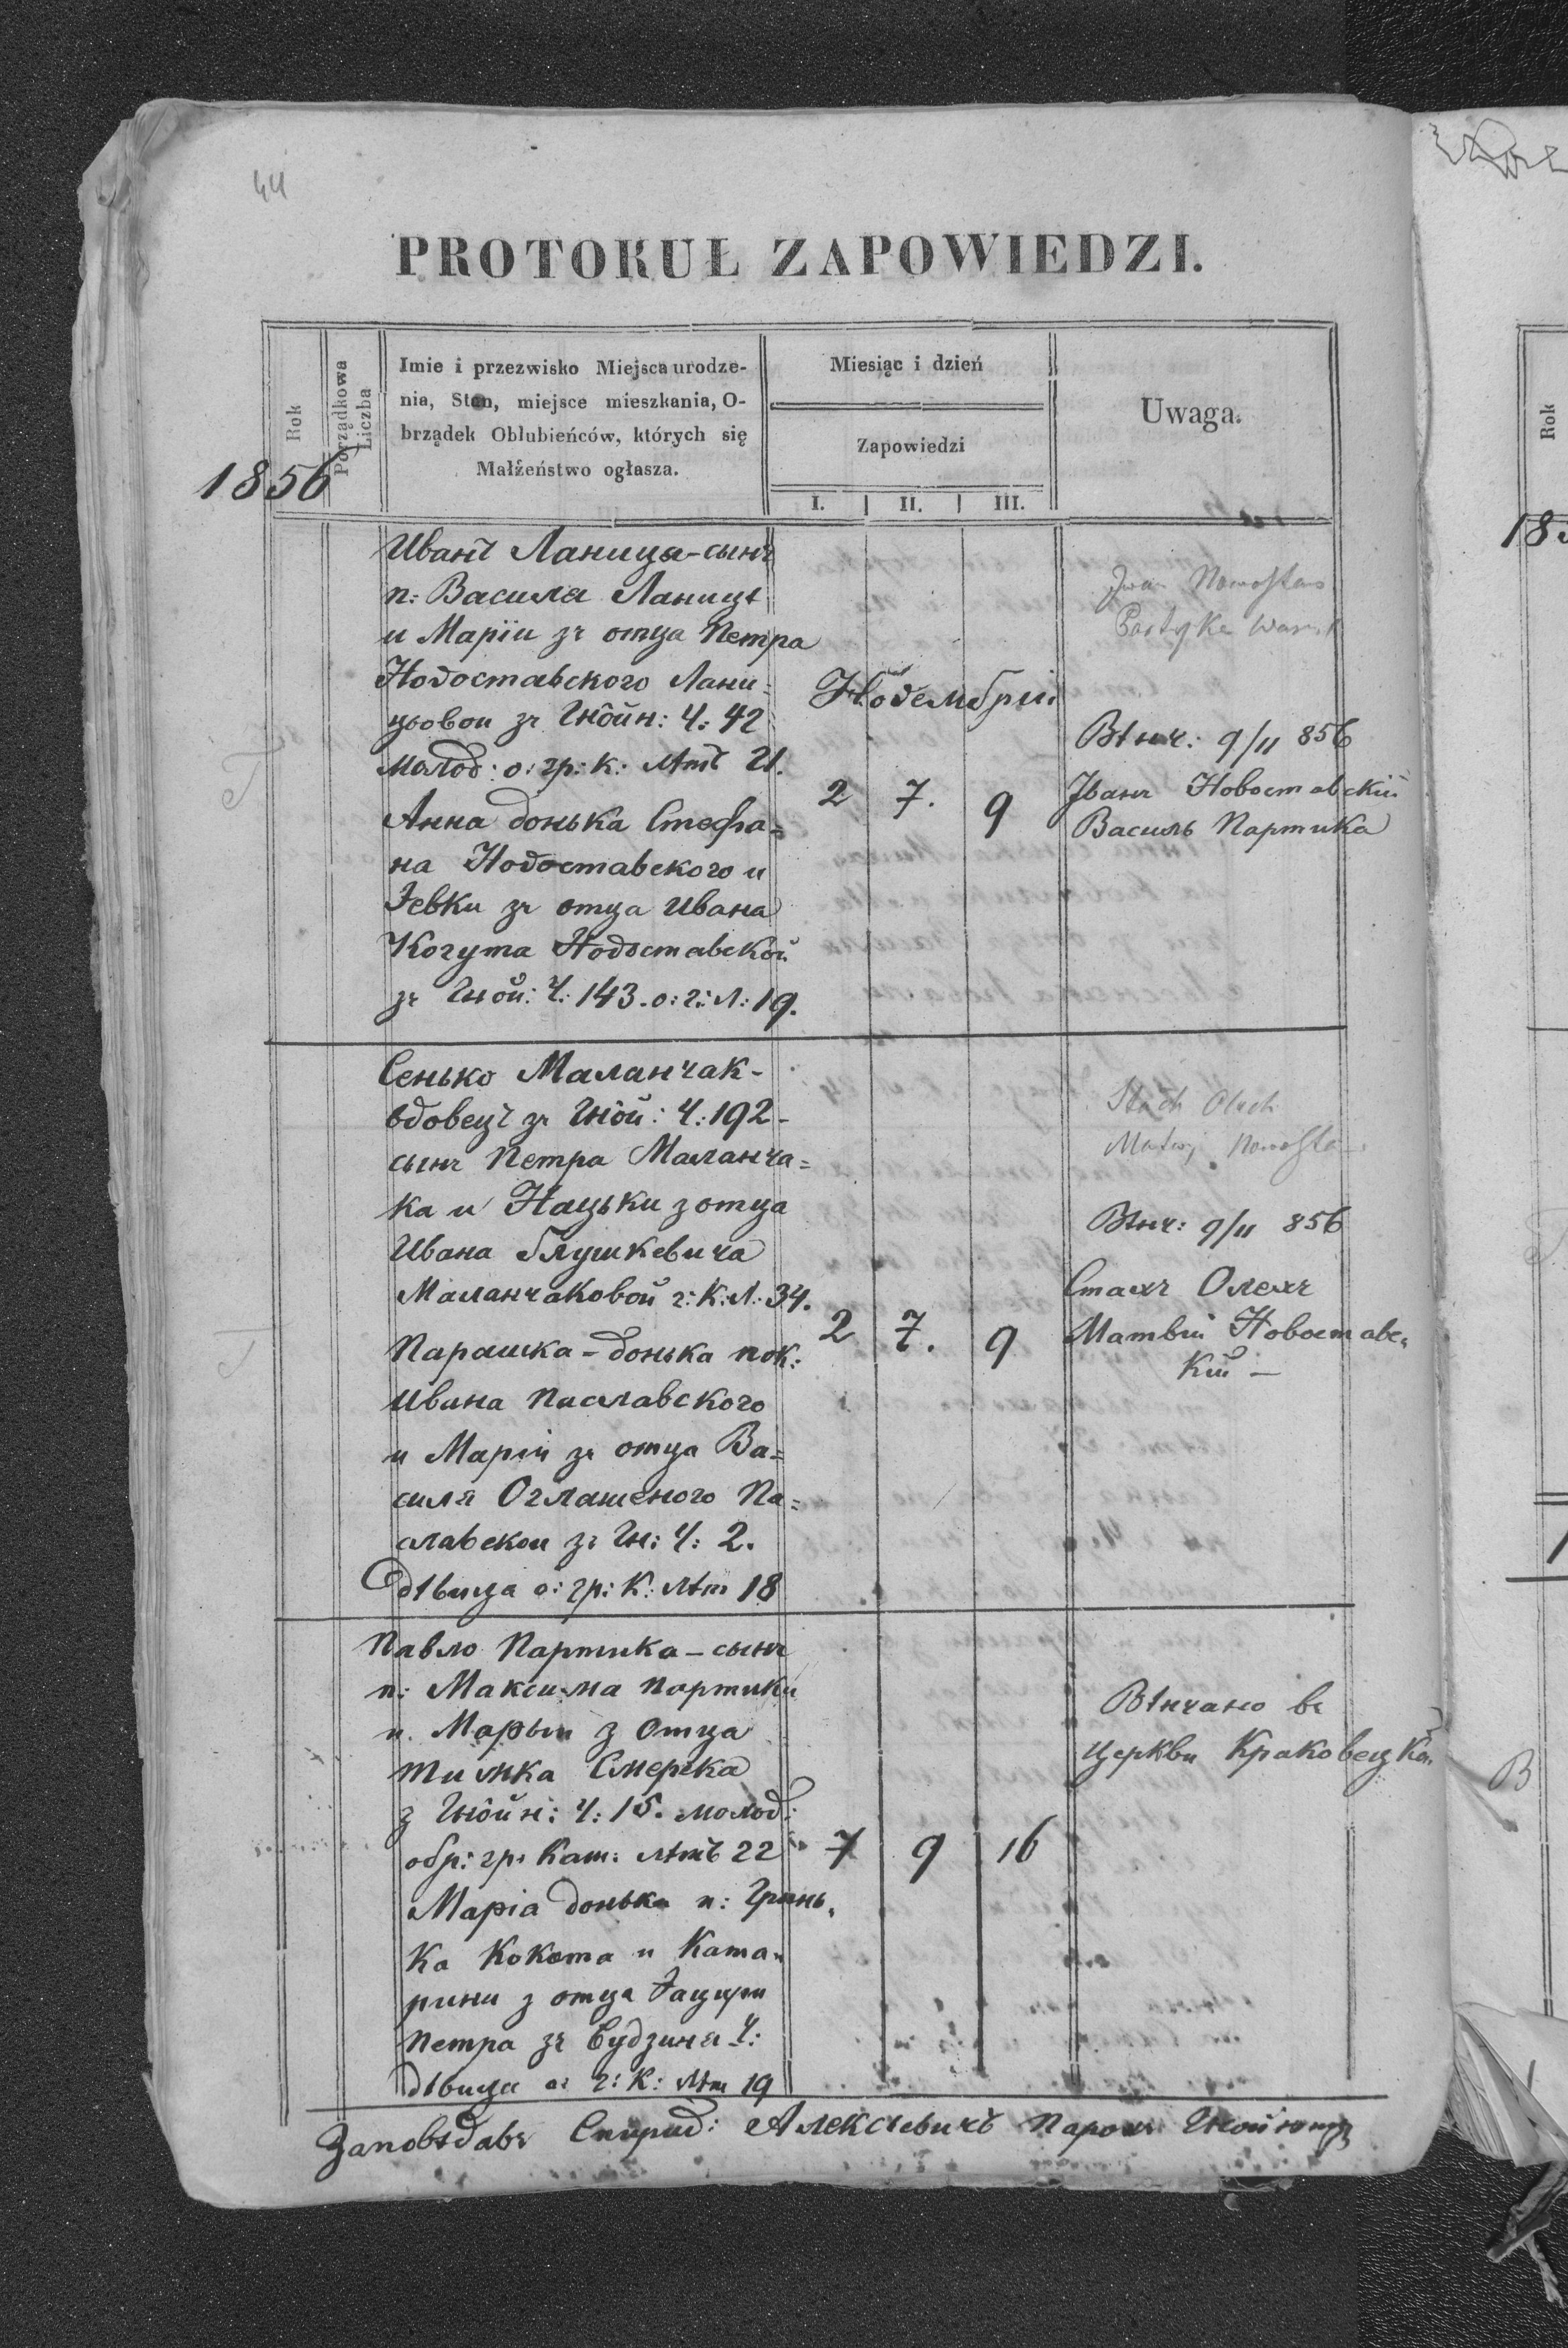 44
PROTOKUŁ ZAPOWIEDZI.
Rok
Porządkowa Liczba
Imie i przezwisko Miejsca urodze-
nia, Stan, miejsce mieszkania, O-
brządek Oblubieńców, których się
Małżeństwo ogłasza.
Miesiąc i dzień
Zapowiedzi
I. II. III.
Uwaga.
1856
Иванъ Ланица - сынъ
п: Василя Ланицѣ
и Маріи зъ отца Петра
Новоставского Лани=
цьовои зъ Гнôйн: Ч: 42
молод: о: гр: к: лѣтъ 21.
Анна донька Стефа=
на Новоставского и
Евки зъ отца Ивана
Когута Новоставскои
зъ Гнôй: Ч: 143. о: г: л: 19.
Новембрій
2 7. 9
Iwan Nowostaw
Partyka Wasyl
Вѣнч: 9/11 856
Іванъ Новоставскій
Василь Партика
Сенько Маланчак -
вдовецъ зъ Гнôй: Ч: 192 -
сынъ Петра Маланча=
ка и Нацьки з отца
Ивана Глушкевича
Маланчаковой г: К: Л: 34.
Парашка - донька пок:
Ивана Паславского
и Маріи зъ отца Ва=
силя Оглашеного Па=
славскои зъ Гн: Ч: 2.
дѣвица о: гр: К: лѣт 18
2 7. 9
Stach Olech
Matwij Nowosta
Вѣнч: 9/11 856
Стахъ Олехъ
Матвій Новоставс=
кій -
Павло Партика - сынъ
п: Максима Партики
и Марыи з Отца
Тимка Смерека
з Гнôйн: Ч: 15. молод:
обр: гр: Кат: лѣтъ 22
Марія донька п: Гринь=
ка Кокота и Ката=
рини з отца
Петра зъ Будзиня Ч:
дѣвица о: г: К: лѣт 19
7 9 16
Вѣнчано въ
церкви Краковецкой
Заповѣдавъ Спирид: Алексѣевичъ Парохъ
Rok